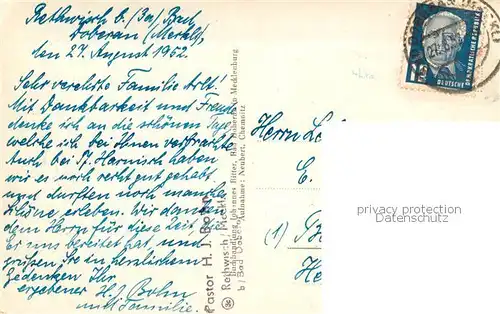 Rethwisch b./Bad
Doberan (Meckl.)
den 27. August 1952.
Sehr verehrte Familie
Mit Dankbarkeit und Freude
denke ich an die schönen Tage
welche ich bei Ihnen verbrachte
Auch bei Harnisch haben
wir es noch recht gut gehabt
und durften noch manches
Schöne erleben. Wir danken
dem Herrn für diese Zeit, die
Er uns bereitet hat, und
grüßen Sie in herzlichem
Gedenken Ihr
ergebener H.J. Bohn
mit Familie.
Pastor H. J. Bohn
Rethwisch / Meckl.
b/ Bad Doberan
Buchhandlung Johannes Bitter, Bad Doberan in Mecklenburg
Aufnahme: Neubert, Chemnitz
DEUTSCHE
DEMOKRATISCHE REPUBLIK
Herrn
(1)
privacy protection
DataGuard